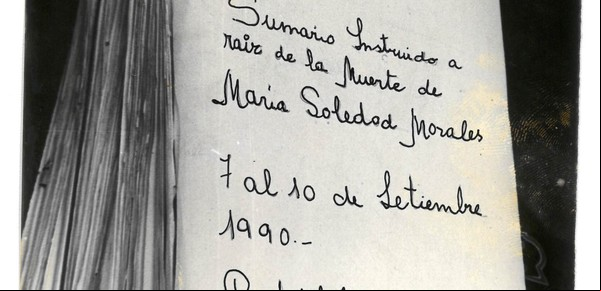 Sumario Instruido a
raiz de la Muerte de
Maria Soledad Morales
7 al 10 de Setiembre
1990.-